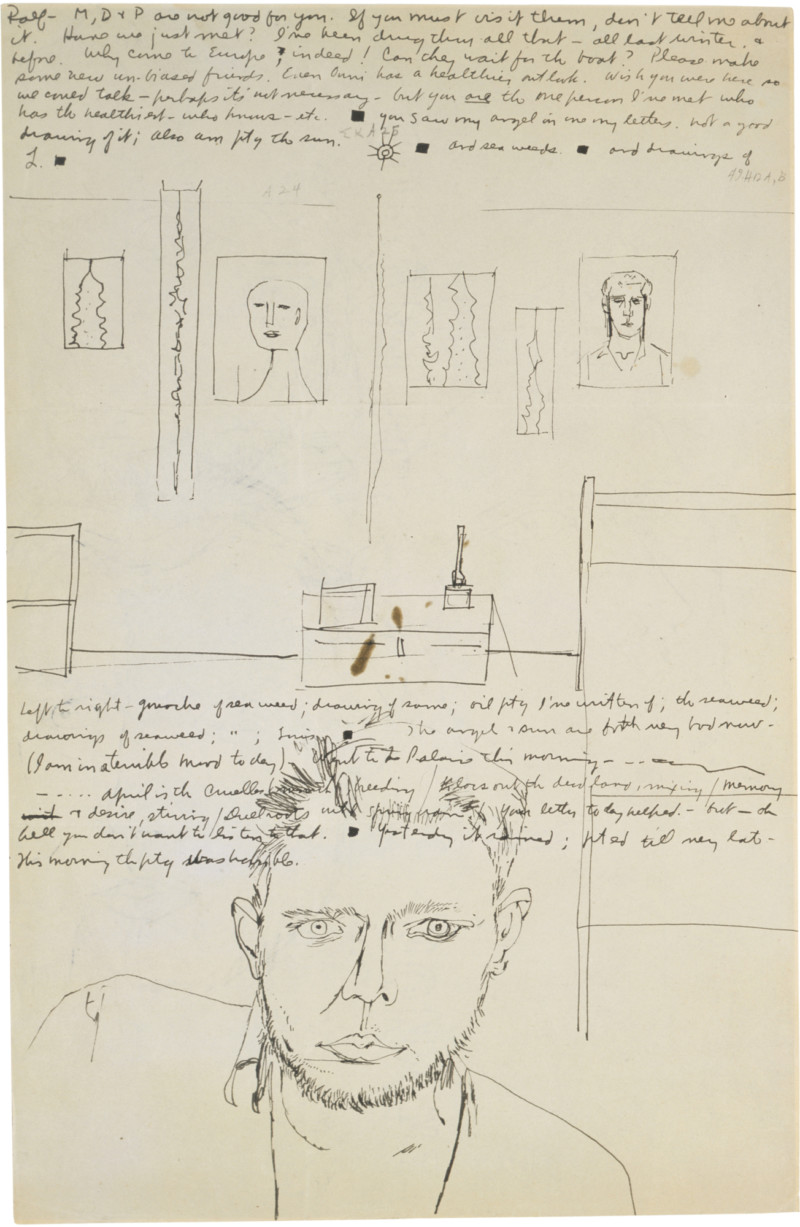 Ralf - M, D + P are not good for you. If you must visit them, don't tell me about
it. Have we just met? I've been thru all that - all last winter. a
before. Why come to Europe? indeed! Can they wait for the boat? Please make
some new un-biased friends. Even has a healthier outlook. Wish you were here so
we could talk - perhaps it's not necessary - but you are the one person I've met who
has the healthiest - who knows - etc. ■ you saw my angel in one my letters. not a good
drawing of it; also am ptg the sun. ■ and sea weeds. ■ and drawings of
L. ■
A24
Left to right - gouache of sea weed; drawing of same; oil ptg I've written of; the seaweed;
drawings of seaweed; " ; ■ The angel + sun are both very bad now -
(I am in a terrible mood today) - Went to the Palais this morning - - -
- . . . . April is the Cruellest month, breeding lilacs out the dead land, mixing / memory
+ desire, stirring / Dull roots with spring rain / your letter today helped. - but - oh
hell you don't want to listen to that. ■ Yesterday it rained; pted till very late -
This morning the ptg was horrible.